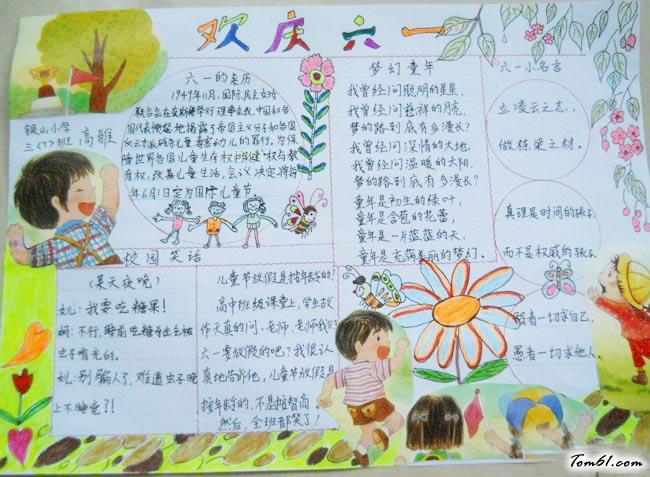 欢庆六一
银山小学
三〈7〉班 高雅
六一的来历
1949年11月,国际民主妇女
联合会在莫斯科举行理事会议,中国和各
国代表愤怒地揭露了帝国主义分子和各国
反动派残杀儿童、毒害幼儿的罪行,为保
障世界各国儿童生存权,保健权与教
育权,改善儿童生活,会议决定将每
年6月1日定为国际儿童节
梦幻童年
我曾经问聪明的星星,
我曾经问慈祥的月亮,
梦的路到底有多漫长?
我曾经问深情的大地,
我曾经问温暖的太阳,
梦的路到底有多漫长?
童年是初生的绿叶,
童年是含苞的花蕾,
童年是一片蓝蓝的天,
童年是充满美丽的梦幻。
六一小名言
立凌云之志,
做栋梁之材。
真理是时间的孩子,
而不是权威的孩子。
智者一切求自己,
愚者一切求他人。
校园笑话
(某天夜晚)
女儿:我要吃糖果!
妈:不行,睡前吃糖牙齿会被
虫子咬光的。
女儿:别骗人了,难道虫子晚
上不睡觉?!
儿童节放假是按年龄的!
高中班级课堂上,学生故
作天真的问,老师,老师我们
六一要放假的吧?我很认
真地告诉他,儿童节放假是
按年龄的,不是按智商。
然后,全班都笑了!
Tom61.com